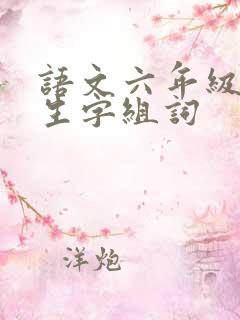 語文六年級
生字組詞
洋炮